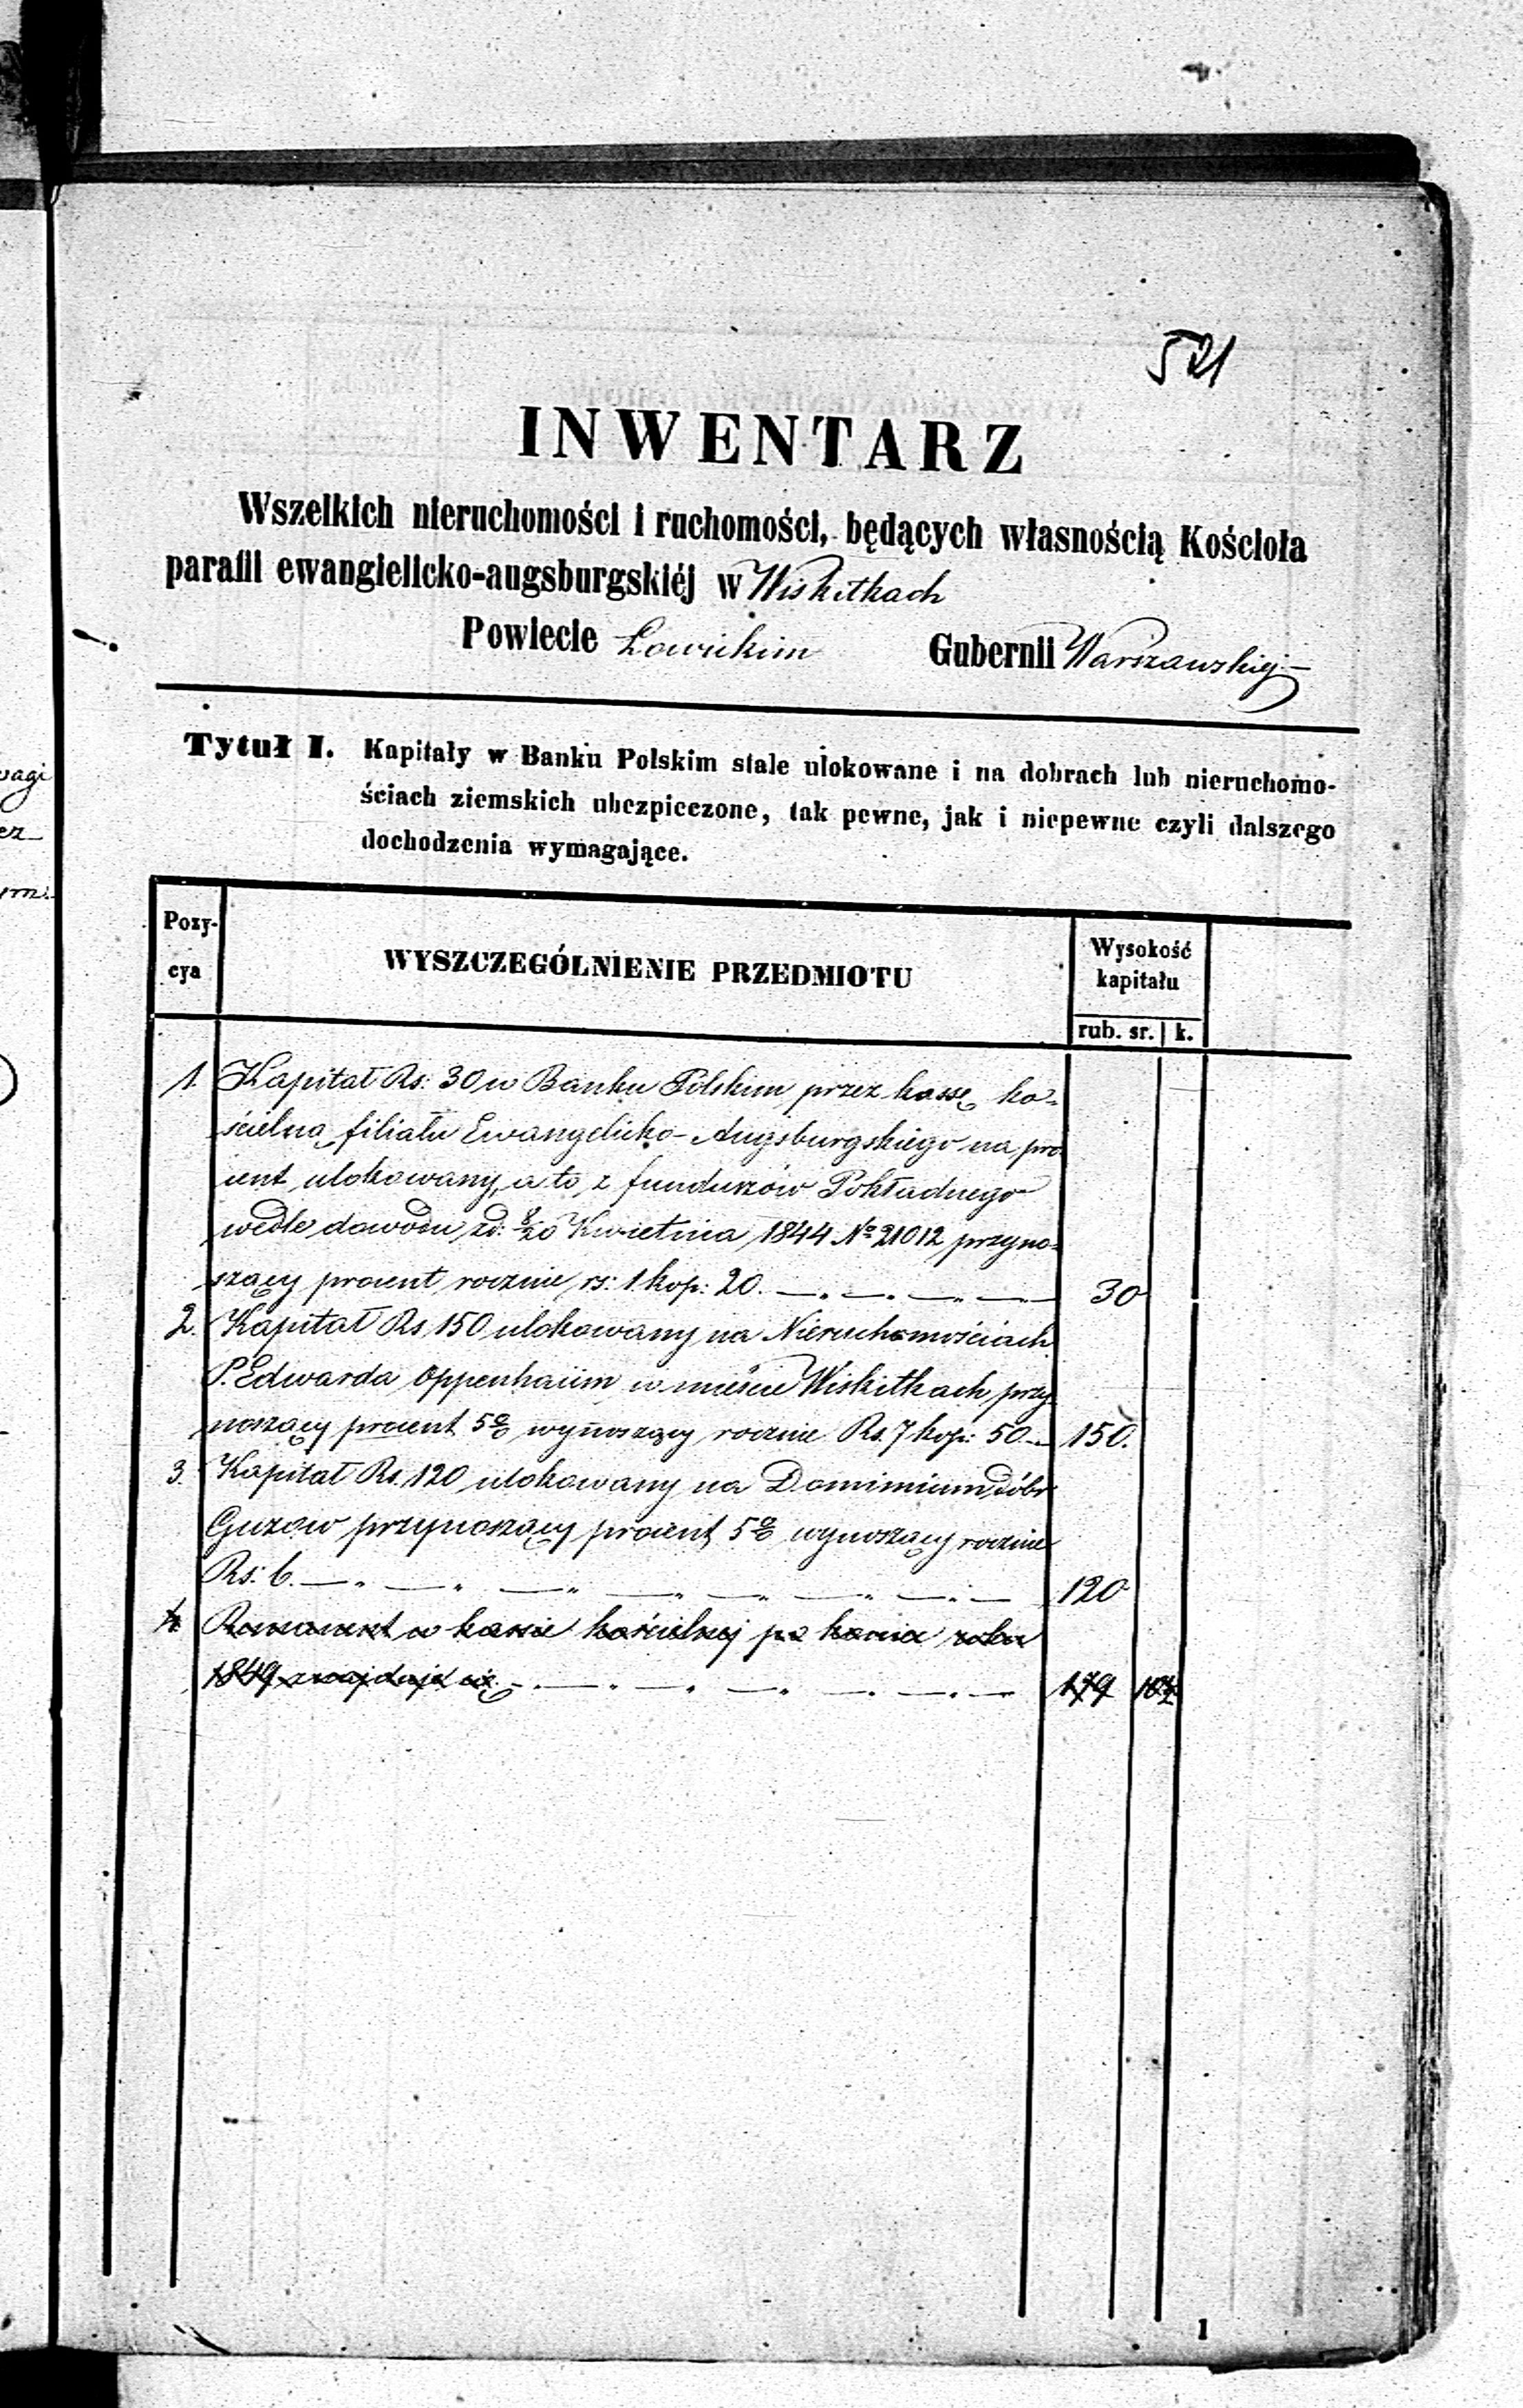 521
INWENTARZ
Wszelkich nieruchomości i ruchomości, będących własnością Kościoła
parafii ewangielicko-augsburgskiéj w Wiskitkach
Powiecie Łowickim Gubernii Warszawskiej
Tytuł I. Kapitały w Banku Polskim stale ulokowane i na dobrach lub nieruchomo-
ściach ziemskich ubezpieczone, tak pewne, jak i niepewne czyli dalszego
dochodzenia wymagające.
Pozy-
cya
WYSZCZEGÓLNIENIE PRZEDMIOTU
Wysokość
kapitału
rub. sr. k.
1. Kapitał Rs: 30 w Banku Polskim przez kassę ko-
ścielną filiału Ewangelicko-Augsburgskiego na pro
cent ulokowany, a to z funduszów Pokładnego
wedle dowodu zd: 8/20 Kwietnia 1844 No 21012 przyno-
szący procent rocznie rs: 1 kop: 20. 30
2. Kapitał Rs 150 ulokowany na Nieruchomościach
P. Edwarda Oppenhaiim w mieście Wiskitkach przy
noszący procent 5% wynoszący rocznie Rs. 7 kop: 50 150.
3. Kapitał Rs. 120 ulokowany na Dominium dóbr
Guzow przynoszący procent 5% wynoszący rocznie
Rs: 6. 120
4. Remanent w kassie kościelnej po koniec roku
1849 znajduje się 179
1